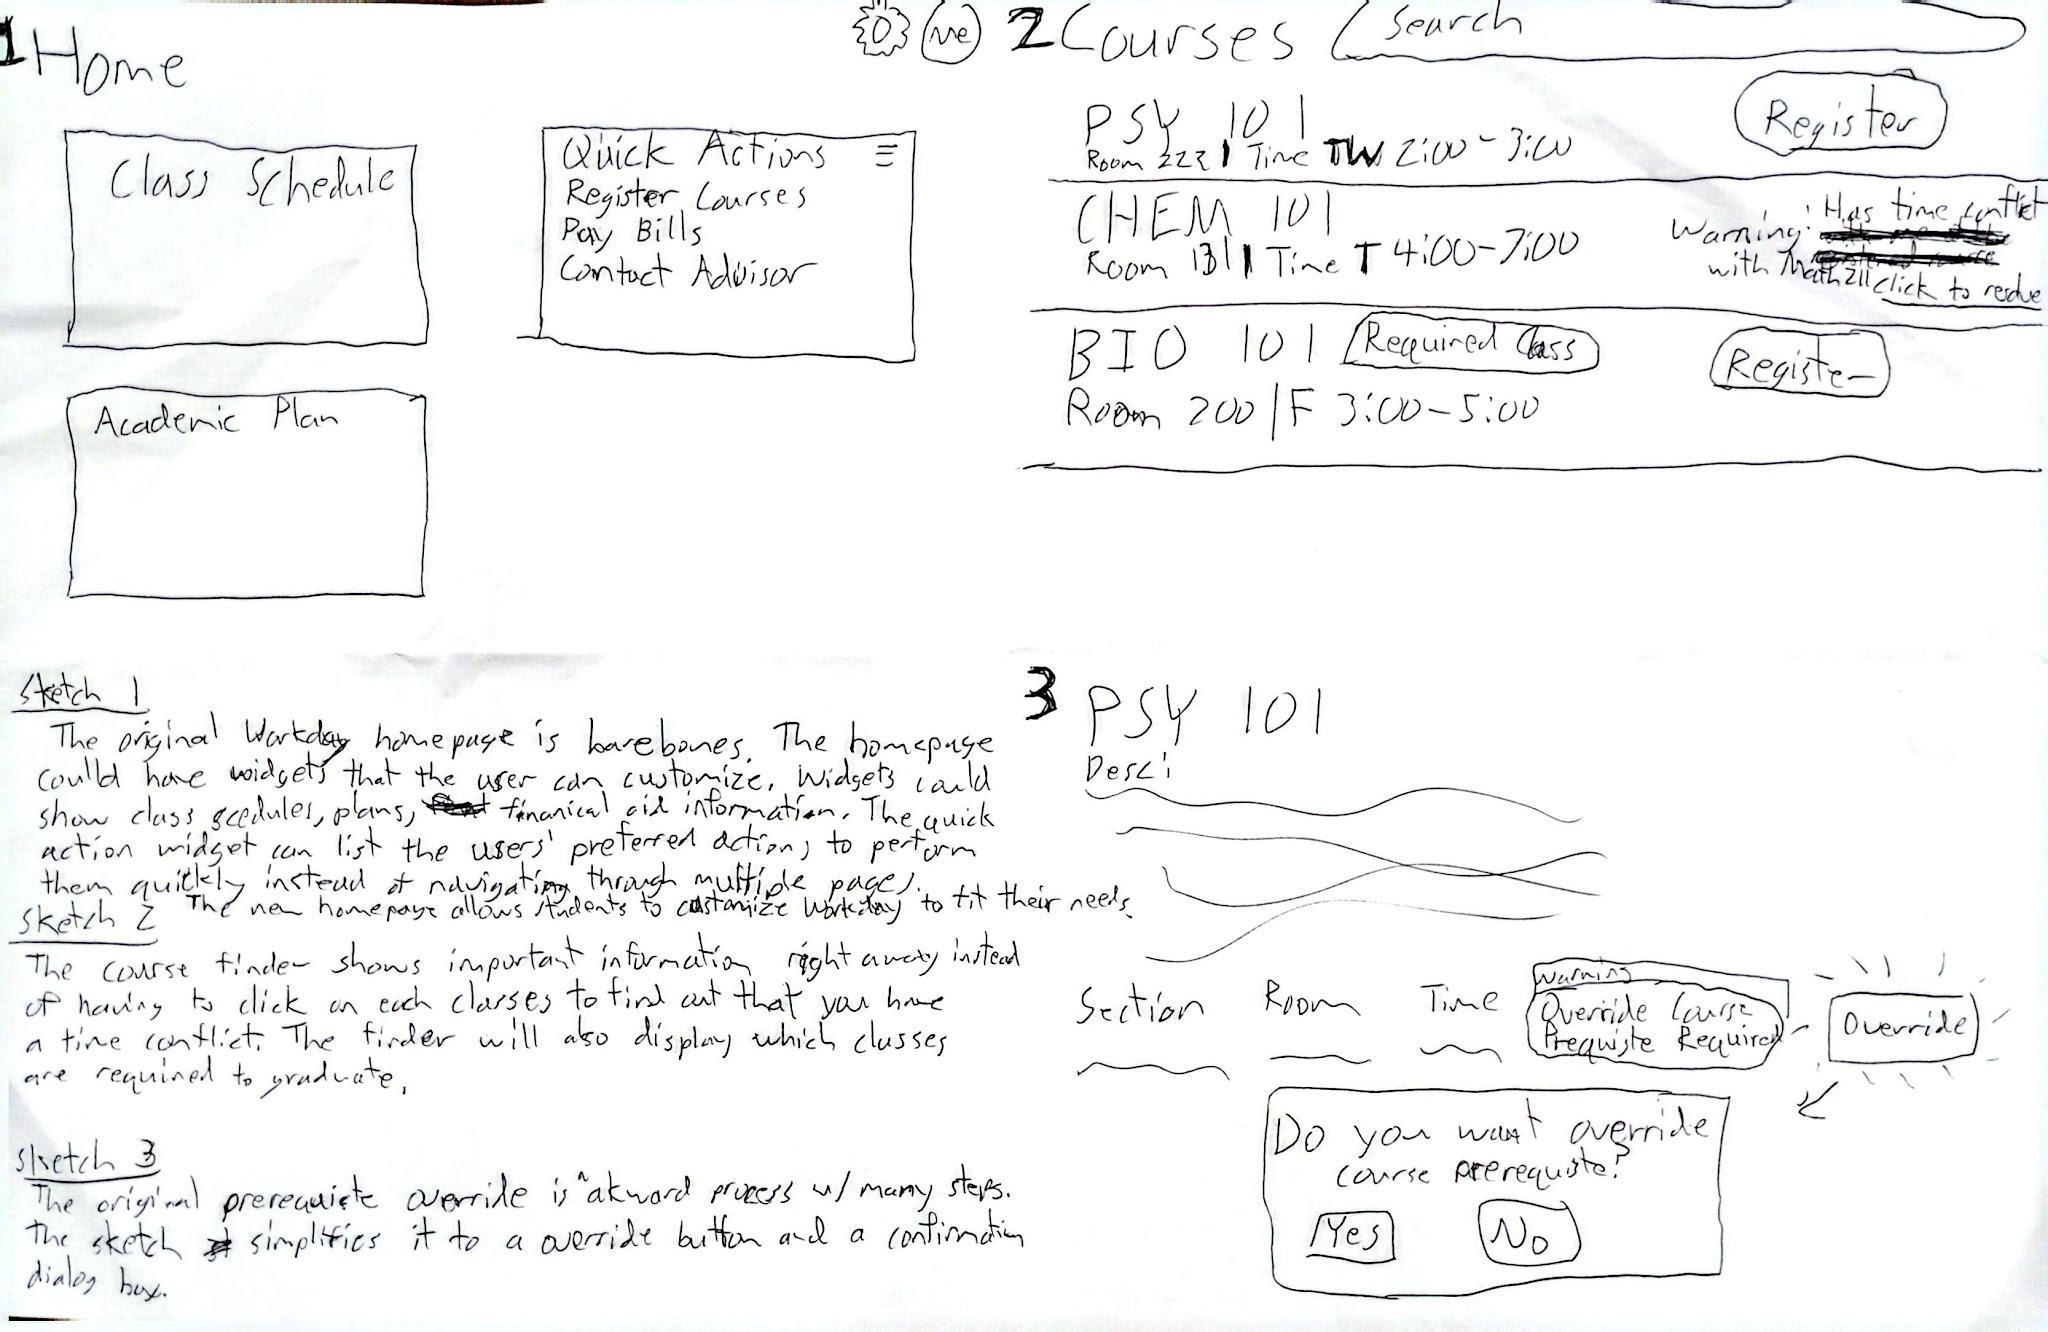 1 Home
Me
Class Schedule
Quick Actions
Register Courses
Pay Bills
Contact Advisor
Academic Plan
2 Courses
Search
PSY 101
Room 222 | Time TW 2:00-3:00
Register
CHEM 101
Room 131 | Time T 4:00-7:00
Warning: Has time conflict
with Math 211 click to resolve
BIO 101 Required Class
Room 200 | F 3:00-5:00
Register
Sketch 1
The original Workday homepage is barebones. The homepage
could have widgets that the user can customize. Widgets could
show class scedules, plans, finanical aid information. The quick
action widget can list the users' preferred actions to perform
them quickly instead of navigating through multiple pages.
The new homepage allows students to customize Workday to fit their needs.
Sketch 2
The course finder shows important information right away instead
of having to click on each classes to find out that you have
a time conflict. The finder will also display which classes
are required to graduate.
Sketch 3
The original prerequiste override is akward process w/ many steps.
The sketch simplifies it to a override button and a confirmation
dialog box.
3 PSY 101
Desc:
Section Room Time
Warning
Override Course
Prequiste Required
Override
Do you want override
course prerequiste?
Yes No